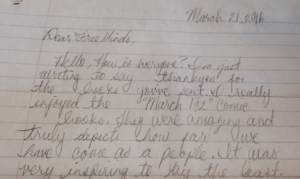 March 21, 2016
Dear Free Minds,
Hello, How is everyone? I'm just
writing to say thankyou for
the books you've sent. I really
enjoyed the "March 1+2" comic
books. They were amazing and
truly depicts how far we
have come as a people. It was
very inspiring to the least.